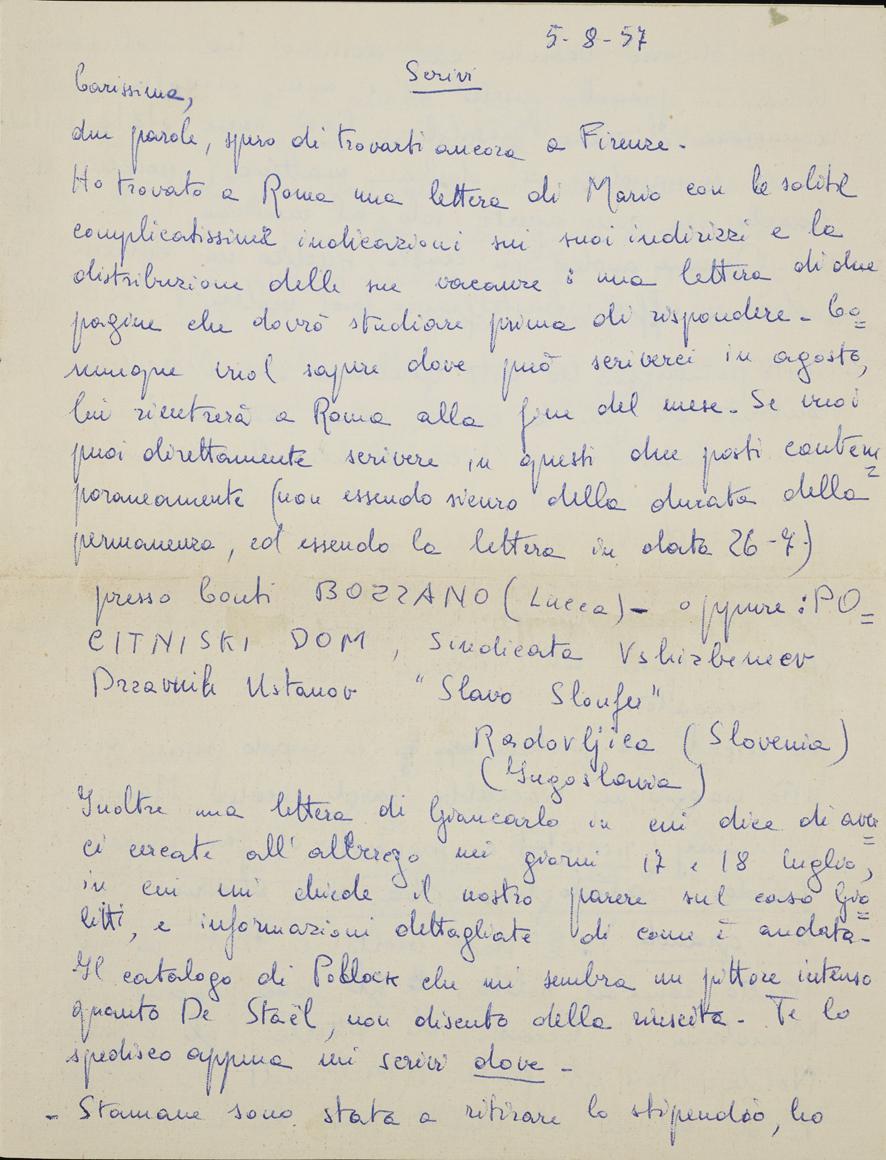 5-8-57
Scrivi
Carissima,
due parole, spero di trovarti ancora a Firenze.
Ho trovato a Roma una lettera di Mario con le solite
complicatissime indicazioni sui suoi indirizzi e la
distribuzione delle sue vacanze : una lettera di due
pagine che dovrò studiare prima di rispondere. Co=
munque vuol sapere dove può scriverci in agosto,
lui rientrerà a Roma alla fine del mese. Se vuoi
puoi direttamente scrivere in questi due posti contem=
poraneamente (non essendo sicuro della durata della
permanenza, ed essendo la lettera in data 26-7)
presso Conti BOZZANO (Lucca) - oppure : PO=
CITNISKI DOM, Sindicata
Drzavnih Ustanov "Slavo"
Radovljica (Slovenia)
(Jugoslavia)
Inoltre una lettera di Giancarlo in cui dice di aver=
ci cercate all'albergo nei giorni 17 e 18 luglio,
in cui mi chiede il nostro parere sul caso Gio=
litti, e informazioni dettagliate di come è andata.
Il catalogo di Pollock che mi sembra un pittore intenso
quanto De Staël, non discuto della riuscita. Te lo
spedisco appena mi scrivi dove -
- Stamane sono stata a ritirare lo stipendio, ho